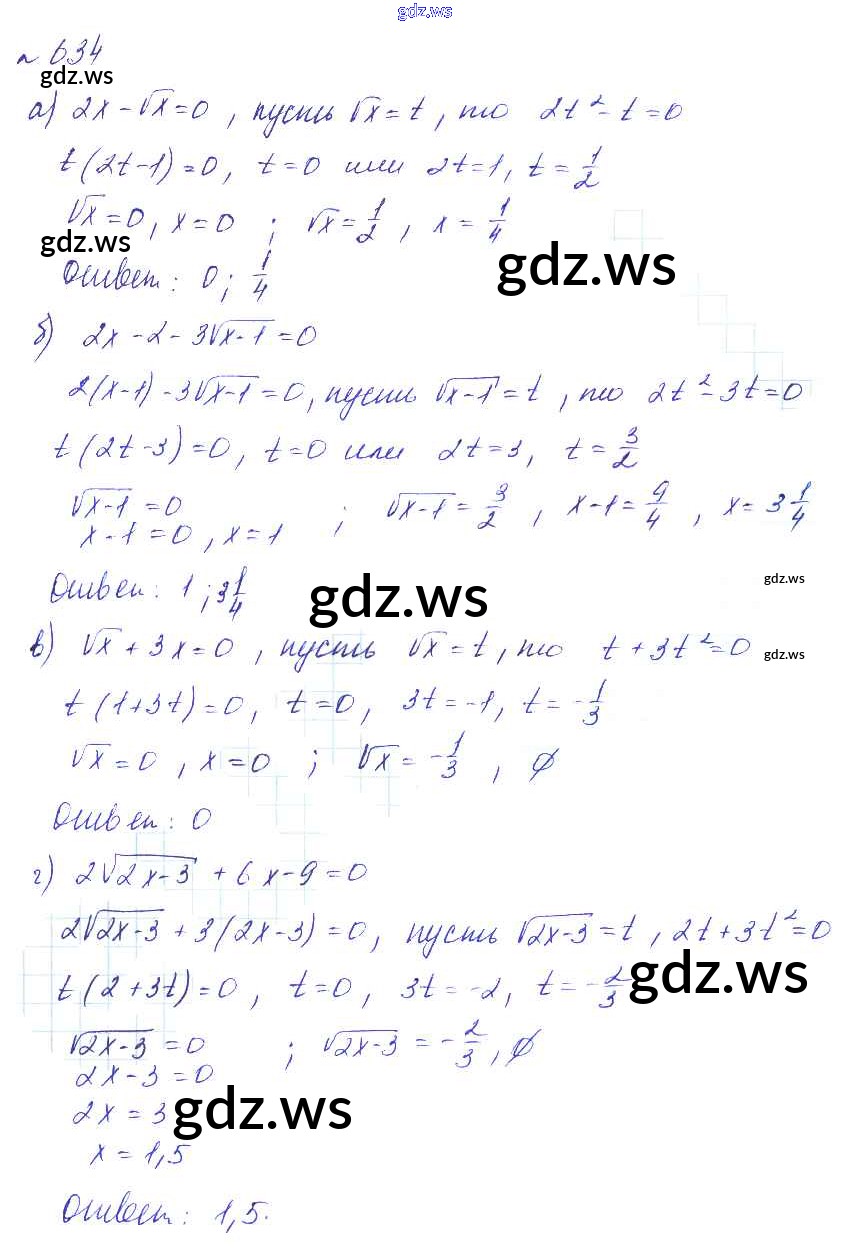 gdz.ws
№ 634
gdz.ws
а) 2x - √x = 0 , пусть √x = t , то 2t² - t = 0
t(2t-1) = 0, t = 0 или 2t = 1, t = 1/2
√x = 0, x = 0 ; √x = 1/2 , x = 1/4
gdz.ws
gdz.ws
Ответ: 0; 1/4
б) 2x - 2 - 3√(x-1) = 0
2(x-1) - 3√(x-1) = 0, пусть √(x-1) = t , то 2t² - 3t = 0
t(2t-3) = 0, t = 0 или 2t = 3, t = 3/2
√(x-1) = 0 ; √(x-1) = 3/2 , x-1 = 9/4 , x = 3 1/4
x-1 = 0 , x = 1
Ответ: 1 ; 3 1/4
gdz.ws
gdz.ws
в) √x + 3x = 0 , пусть √x = t, то t + 3t² = 0
gdz.ws
t(1+3t) = 0, t = 0, 3t = -1, t = -1/3
√x = 0 , x = 0 ; √x = -1/3 , ∅
Ответ: 0
г) 2√(2x-3) + 6x - 9 = 0
2√(2x-3) + 3(2x-3) = 0, пусть √(2x-3) = t , 2t + 3t² = 0
gdz.ws
t(2+3t) = 0 , t = 0, 3t = -2, t = -2/3
√(2x-3) = 0 ; √(2x-3) = -2/3 , ∅
2x-3 = 0
2x = 3
gdz.ws
x = 1,5
Ответ: 1,5.